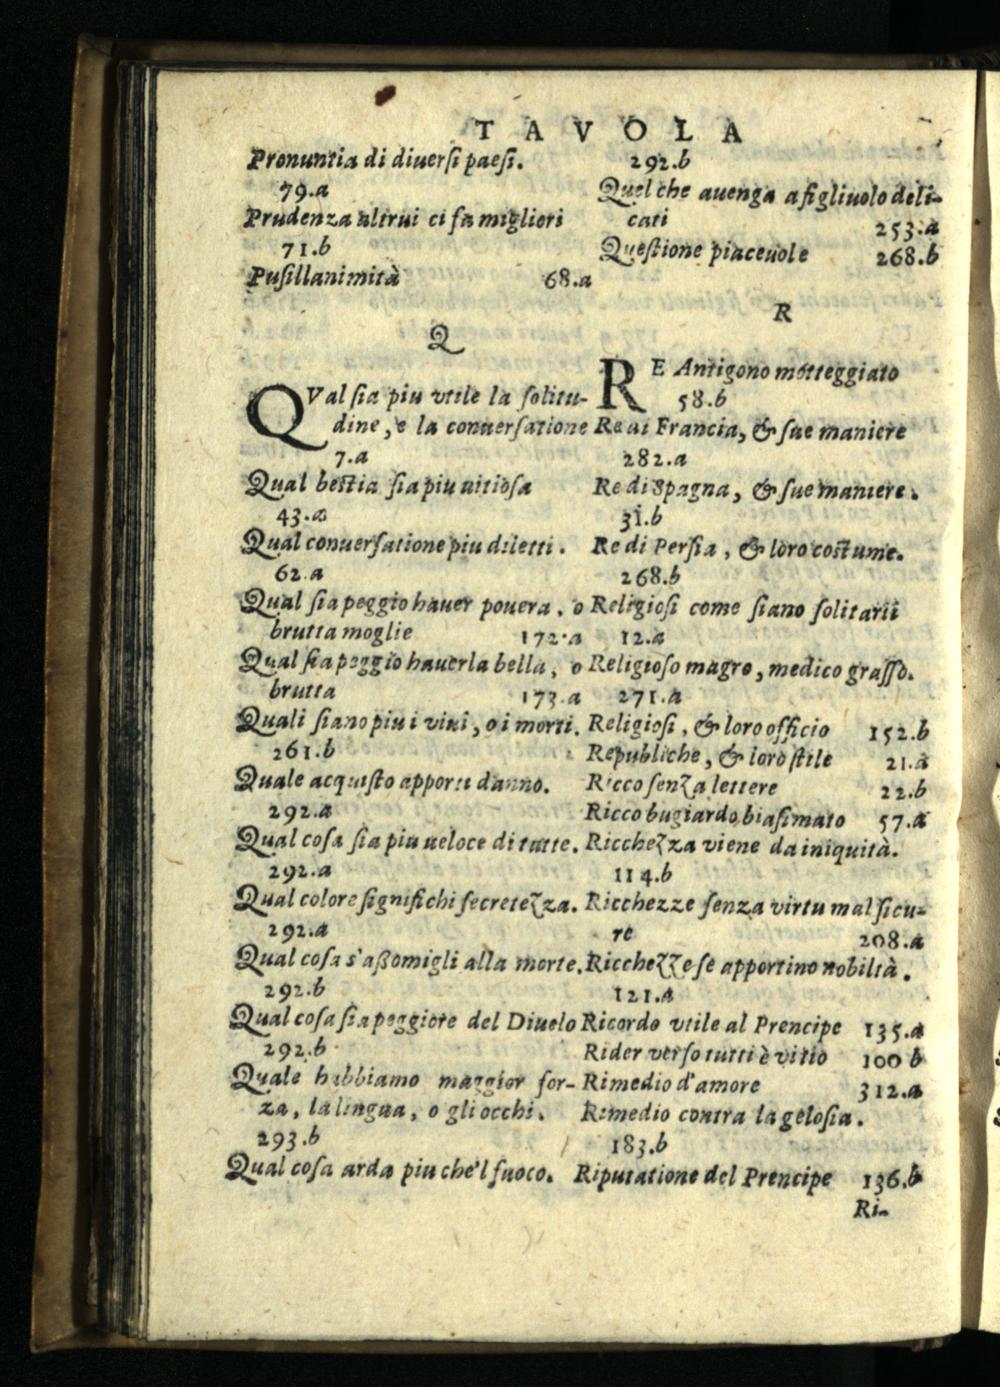 TAVOLA
Pronuntia di diuerſi paeſi.
79.a
Prudenza altrui ci fa miglieri
71.b
Puſillanimità 68.a
Q
QVal ſia piu vtile la ſolitu-
dine, e la conuerſatione
7.a
Qual beſtia ſia piu uitioſa
43.a
Qual conuerſatione piu diletti.
62.a
Qual ſia peggio hauer pouera, o
brutta moglie 172.a
Qual ſia peggio hauerla bella, o
brutta 173.a
Quali ſiano piu i viui, o i morti.
261.b
Quale acquiſto apporti danno.
292.a
Qual coſa ſia piu ueloce di tutte.
292.a
Qual colore ſignifichi ſecretezza.
292.a
Qual coſa s'aßomigli alla morte.
292.b
Qual coſa ſia peggiore del Diuelo
292.b
Quale habbiamo maggior for-
za, la lingua, o gli occhi.
293.b
Qual coſa arda piu che'l fuoco.
292.b
Quel che auenga a figliuolo deli-
cati 253.a
Queſtione piaceuole 268.b
R
RE Antigono motteggiato
58.b
Re di Francia, & ſue maniere
282.a
Re di Spagna, & ſue maniere.
31.b
Re di Perſia, & loro coſtume.
268.b
Religioſi come ſiano ſolitarii
12.a
Religioſo magro, medico graſſo.
271.a
Religioſi, & loro officio 152.b
Republiche, & loro ſtile 21.a
Ricco ſenza lettere 22.b
Ricco bugiardo biaſimato 57.a
Ricchezza viene da iniquità.
114.b
Ricchezze ſenza virtu mal ſicu-
re 208.a
Ricchezze ſe apportino nobiltà.
121.a
Ricordo vtile al Prencipe 135.a
Rider verſo tutti è vitio 100 b
Rimedio d'amore 312.a
Rimedio contra la geloſia.
183.b
Riputatione del Prencipe 136.b
Ri-